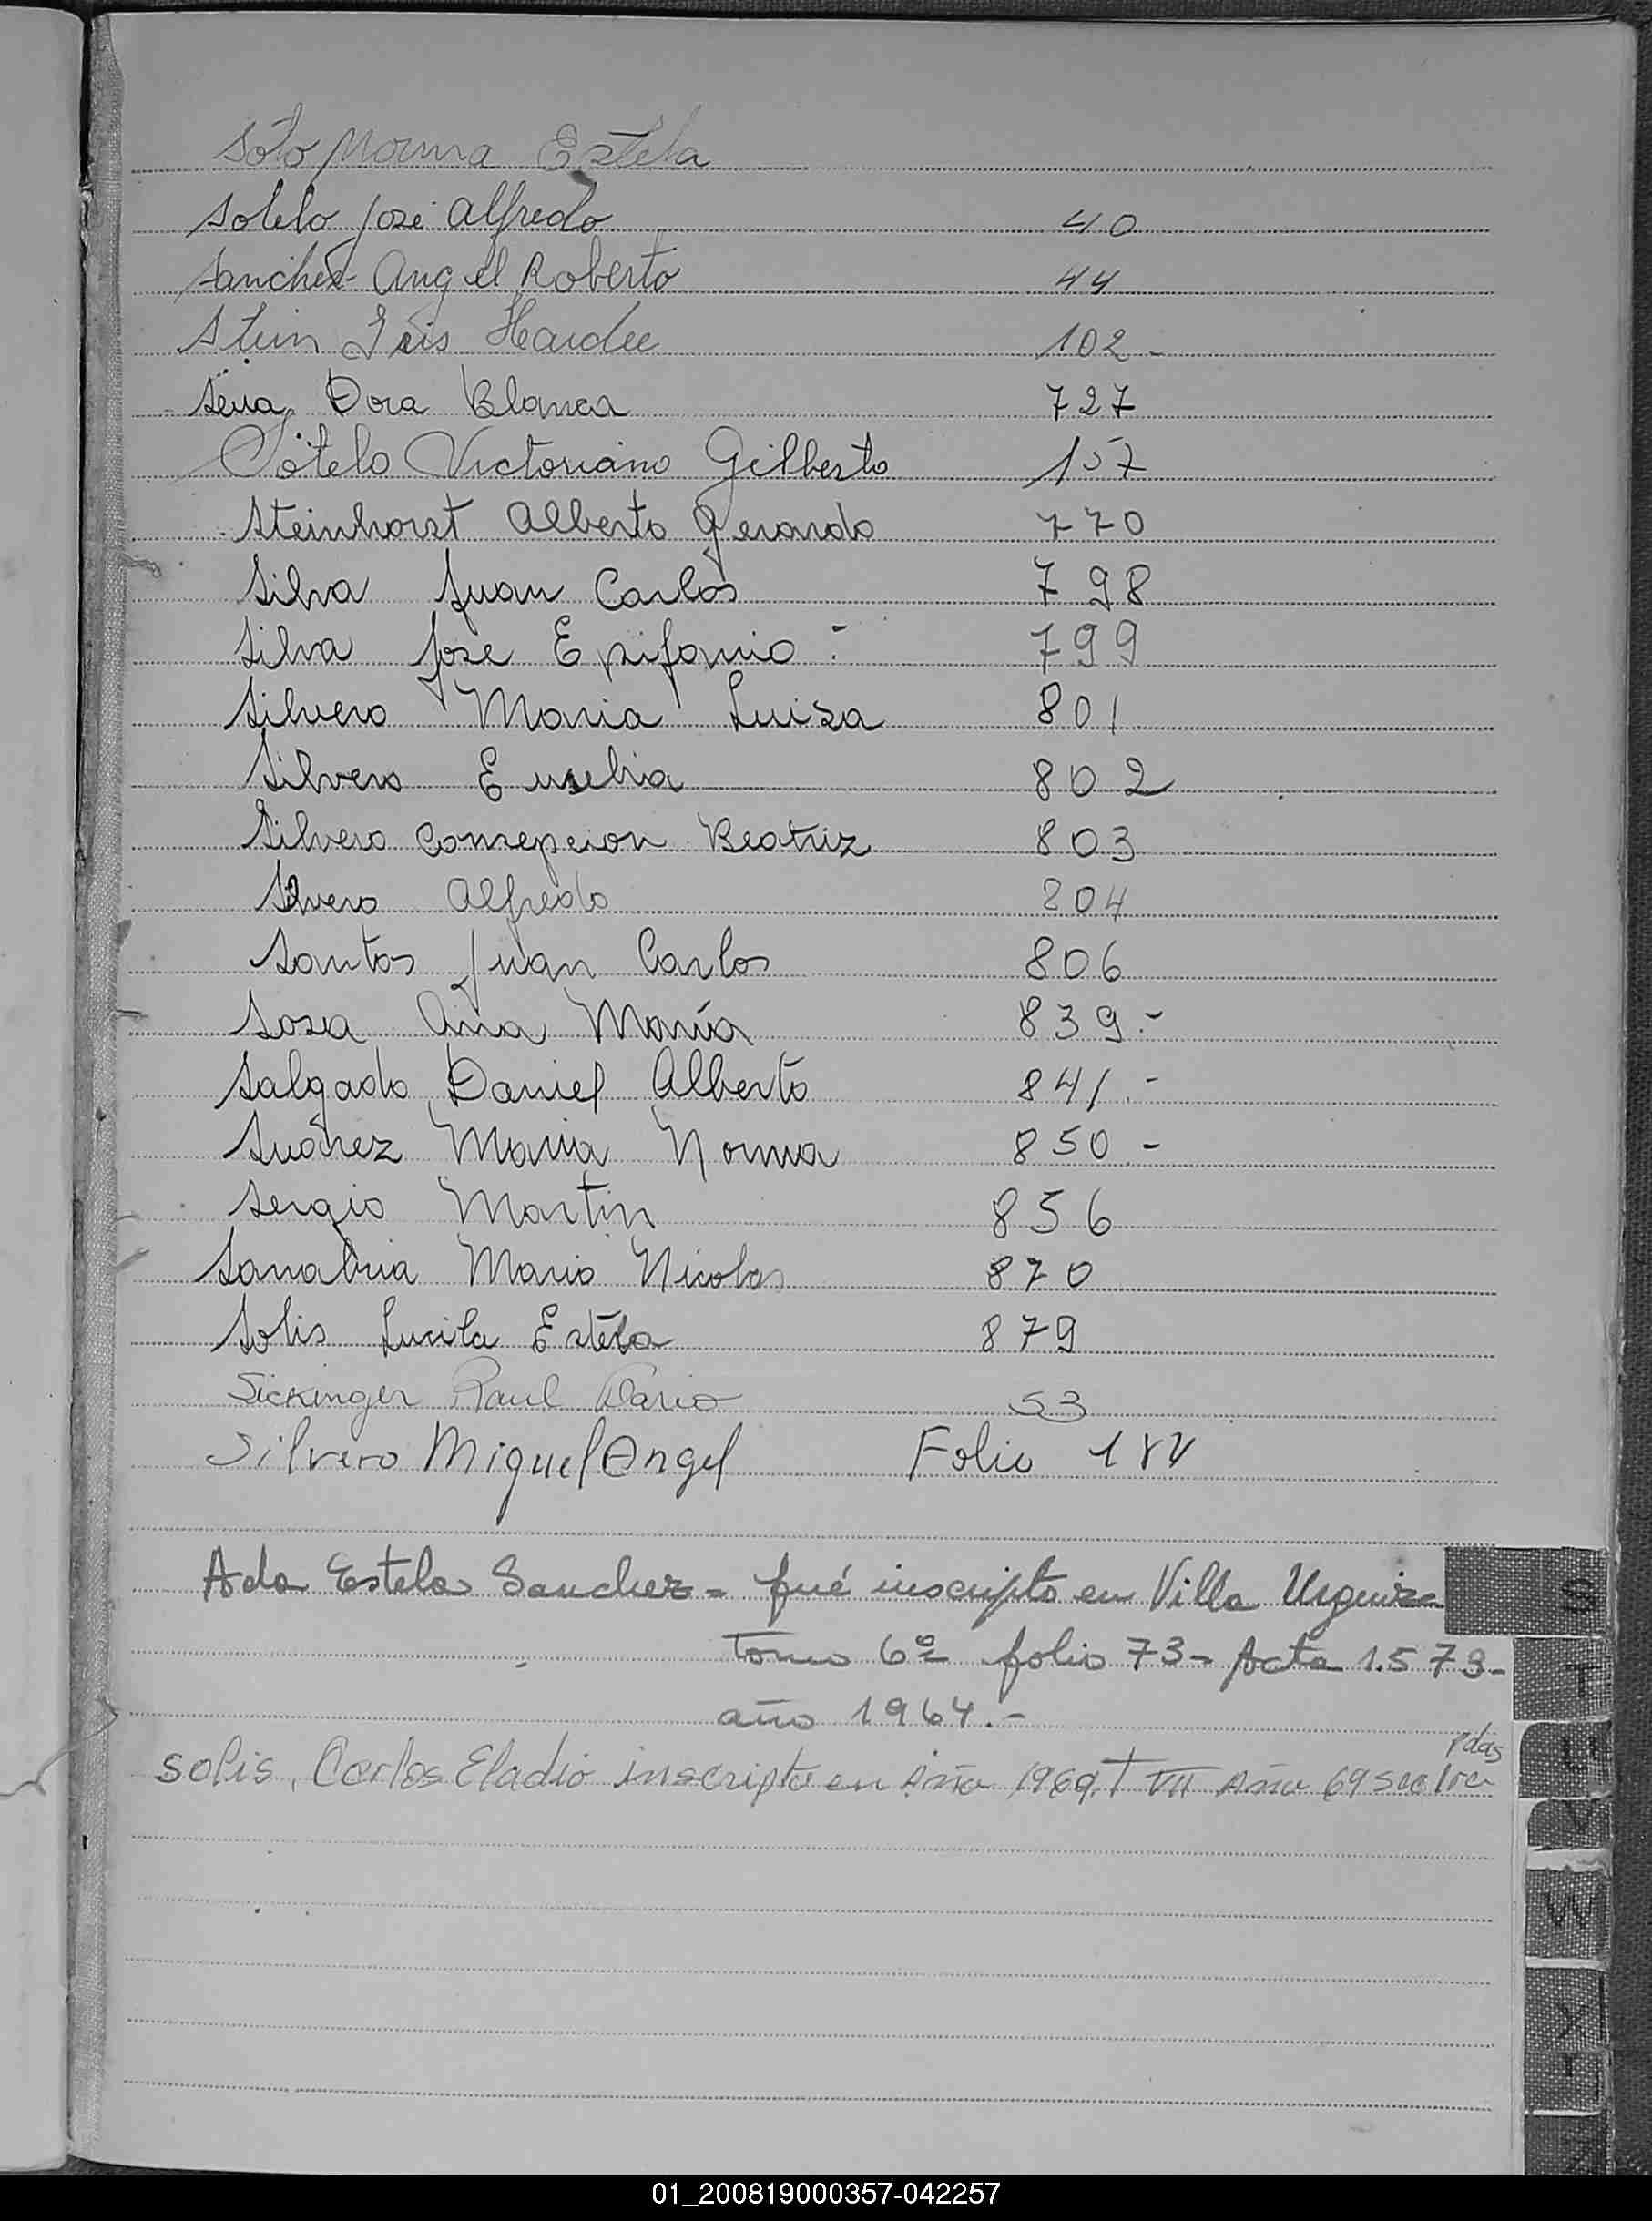 Soto Norma Estela
Sotelo José Alfredo 40
Sanchez Angel Roberto 44
Stein Iris Haidee 102 -
Sena Dora Blanca 727
Sotelo Victoriano Gilberto 157
Steinhorst Alberto Gerardo 770
Silva Juan Carlos 798
Silva Jose Epifanio :- 799
Silvero Maria Luisa 801
Silvero Eusebia 802
Silvero Consepcion Beatriz 803
Silvero Alfredo 804
Santos Juan Carlos 806
Sosa Ana María 839.-
Salgado Daniel Alberto 841.-
Suárez Maria Norma 850.-
Sergio Martin 856
Sanabria Mario Nicolas 870
Solis Lucila Estela 879
Sickinger Raul Dario 53
Silvero Miguel Angel Folio
Ada Estela Sanchez = fué inscripto en Villa Urquiza
Tomo 6º folio 73 - Acta 1.573-
año 1964.-
pdas
Solis, Carlos Eladio inscripto en Año 1969. T VII Año 69 Sec 1ra
S
T
U
V
W
X
Y
Z
01_200819000357-042257